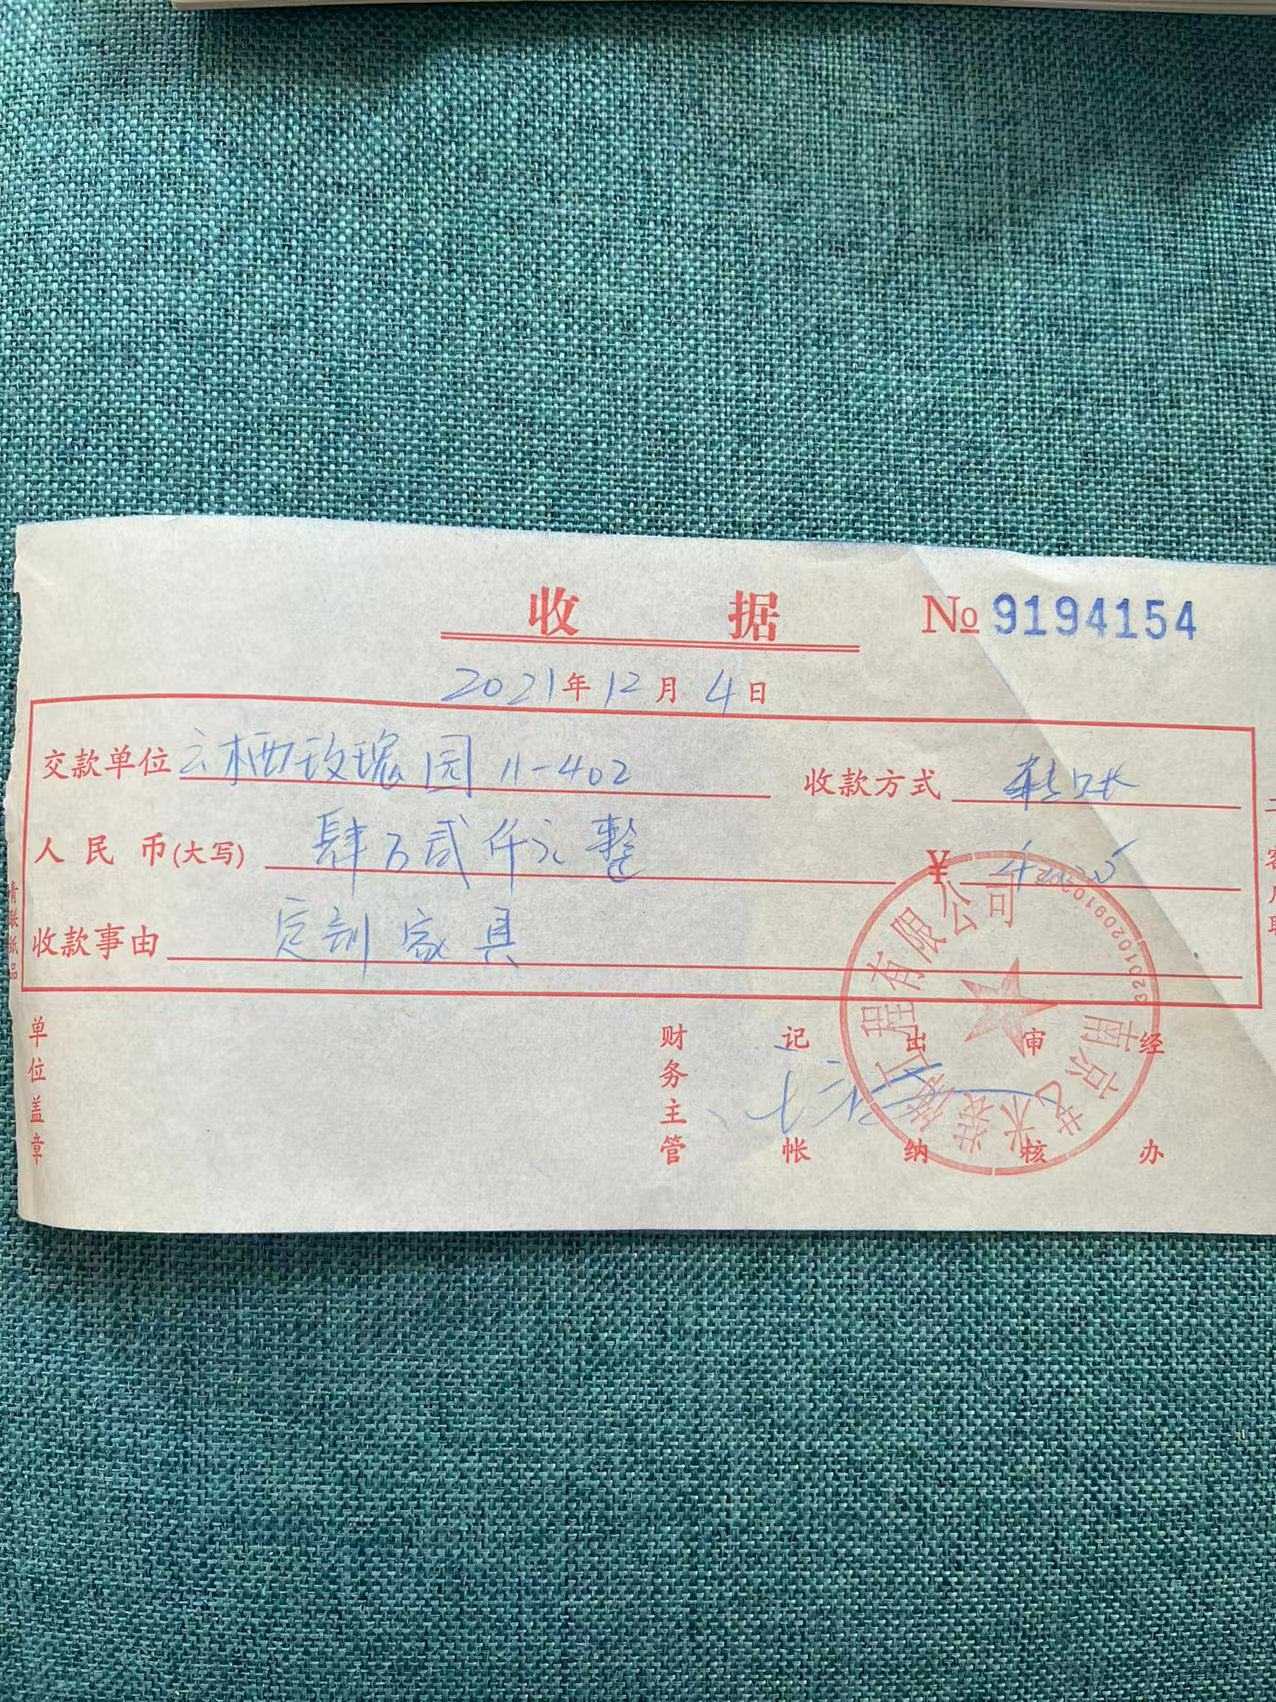 收 据 № 9194154
2021年12月4日
交款单位 云栖玫瑰园 11-402 收款方式 转账
人民币(大写) 肆万贰仟元整 ¥
收款事由 定制家具
单位盖章 财务主管 记帐 出纳 审核 经办
南京艺米装饰工程有限公司